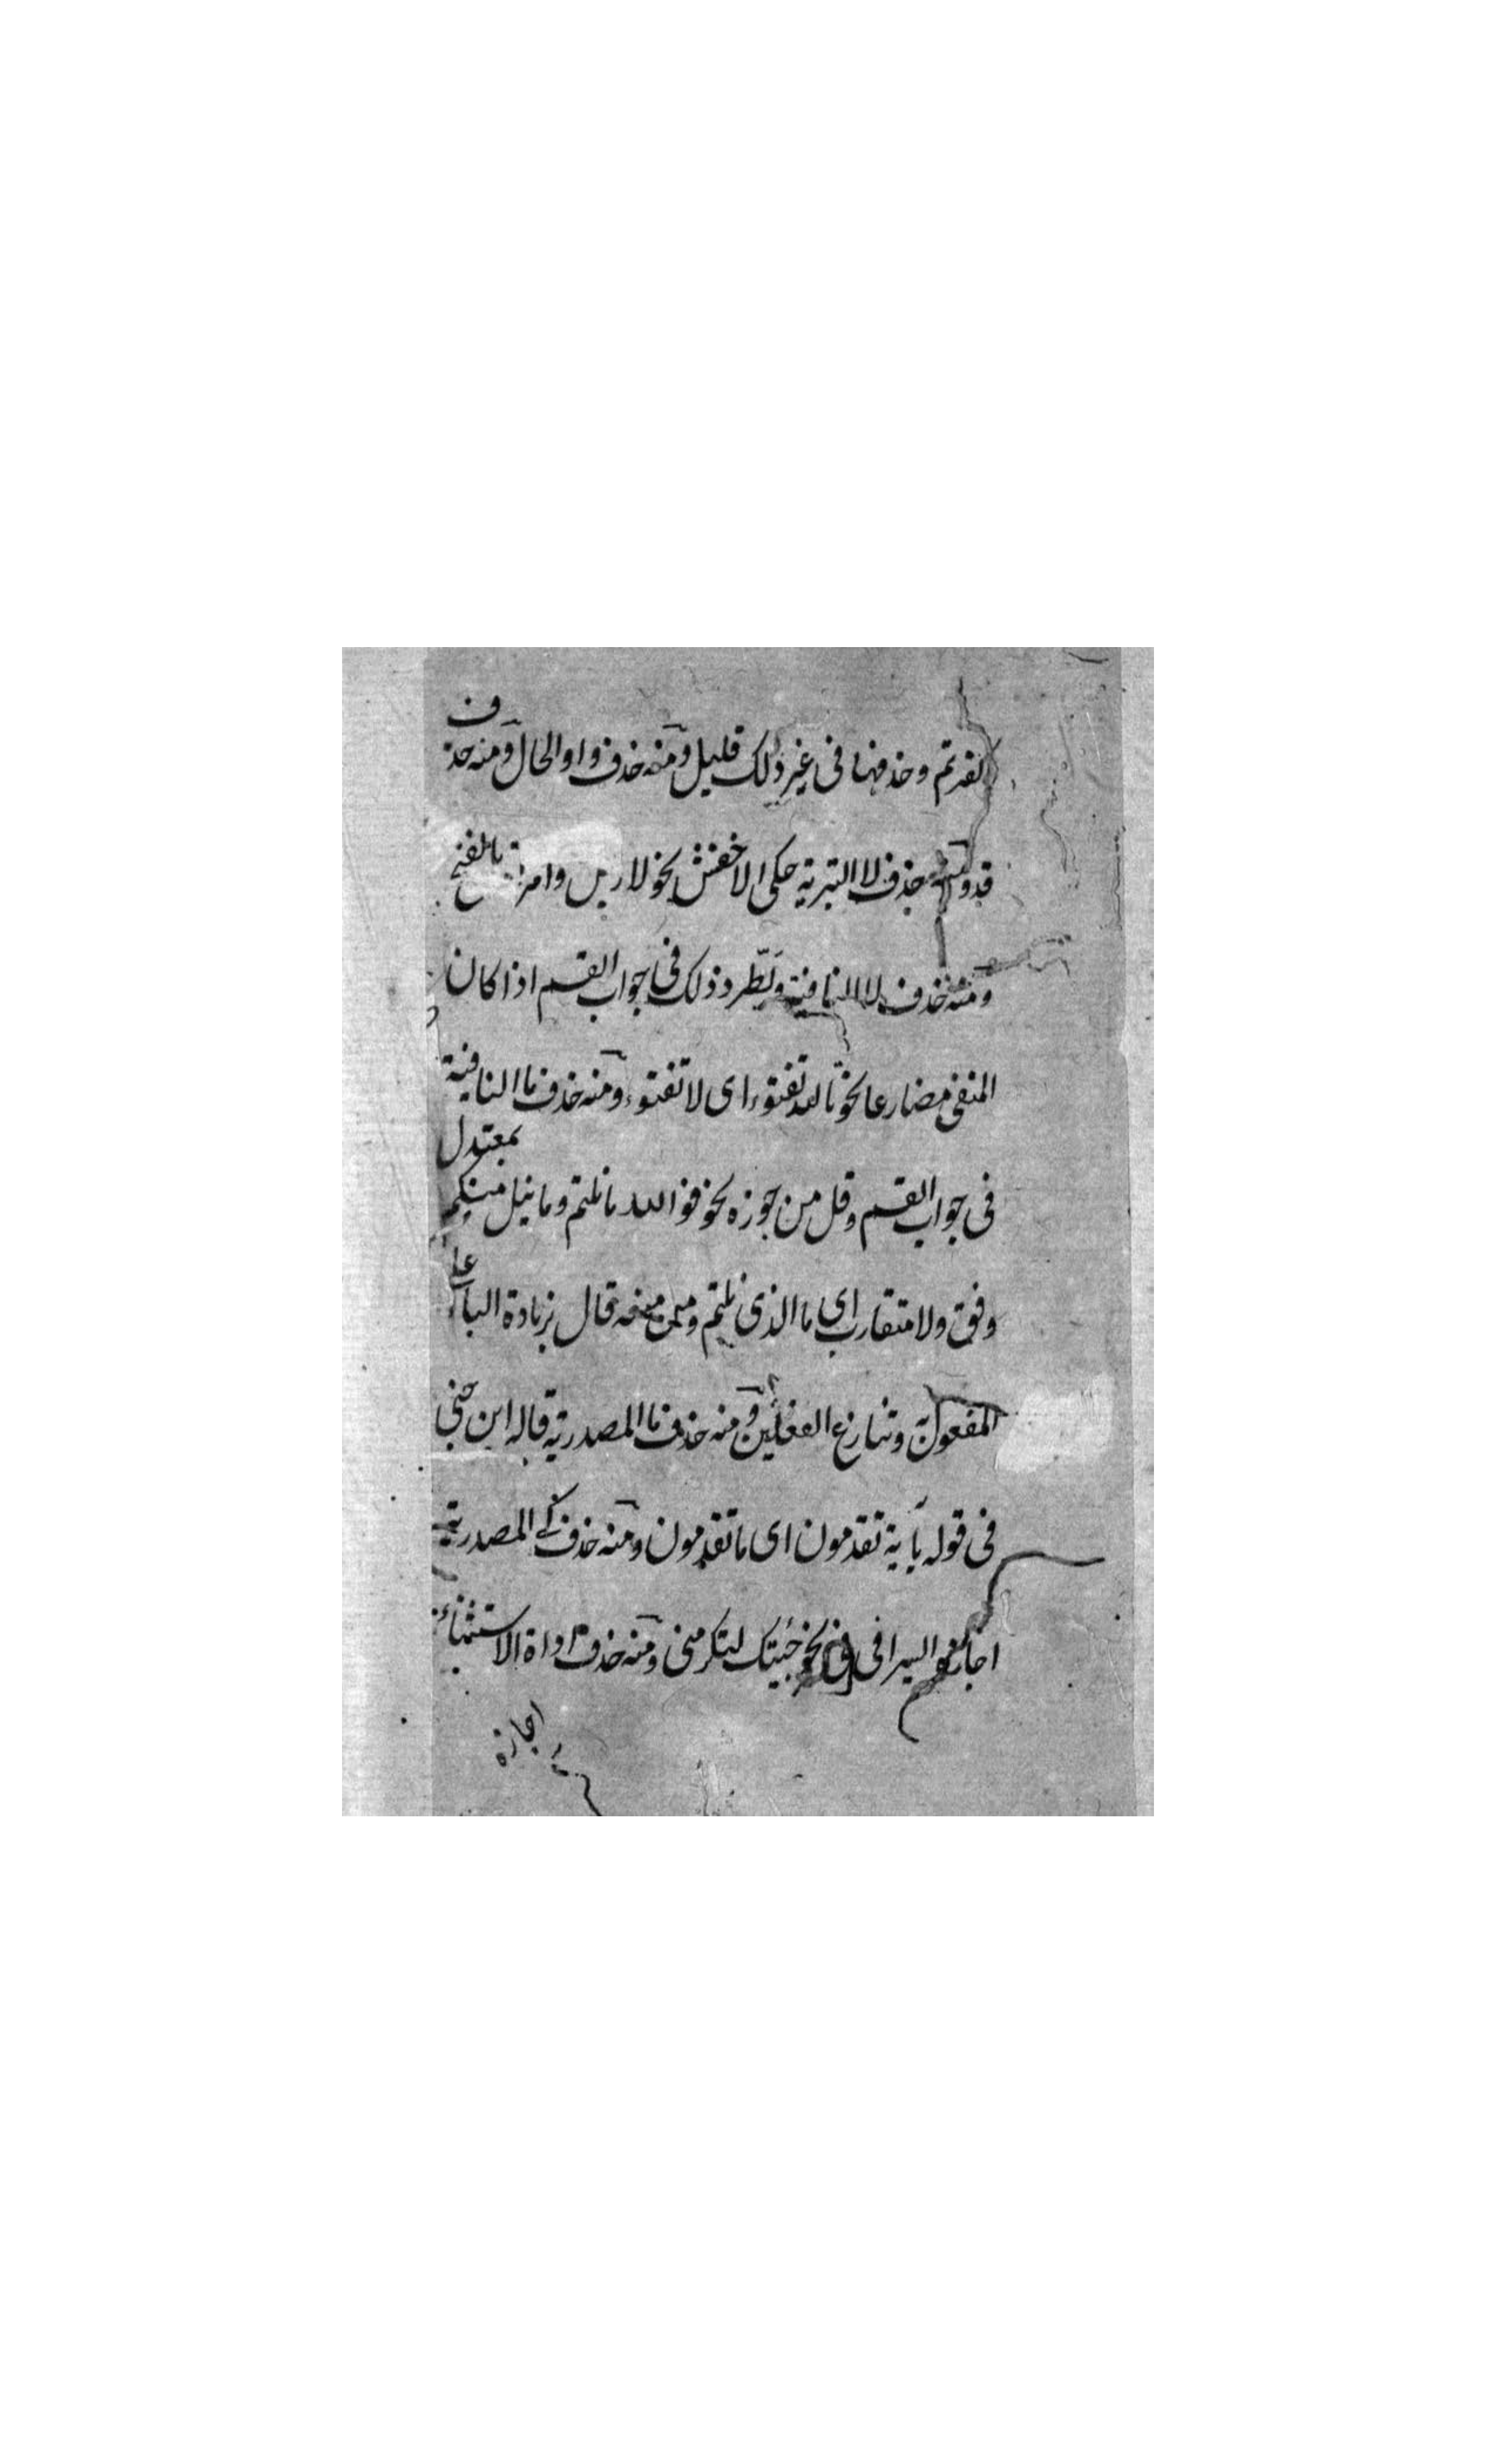 لقد تم وحذفها فى غير ذلك قليل ومنه حذف واو الحال ومنه حذف
قد ومنه حذف لا التبرية حكى الاخفش نحو لا رجل وامراة بالفتح
ومنه حذف لا النافية ويطرد ذلك فى جواب القسم اذا كان
المنفى مضارعا نحو تالله تفتوء اى لا تفتوء ومنه حذف ما النافية
فى جواب القسم وقل من جوزه نحو فو الله ما نلتم وما نيل منكم بمعتدل
وفق ولا متقارب اى ما الذى نلتم ومن منعه قال بزيادة الباء على
المفعول وتنازع الفعلين ومنه حذف ما المصدرية قاله ابن جنى
فى قوله بآية تقدمون اى ما تقدمون ومنه حذف كى المصدرية
اجازه السيرافى فى نحو جئتك لتكرمنى ومنه حذف اداة الاستثناء
اجازه